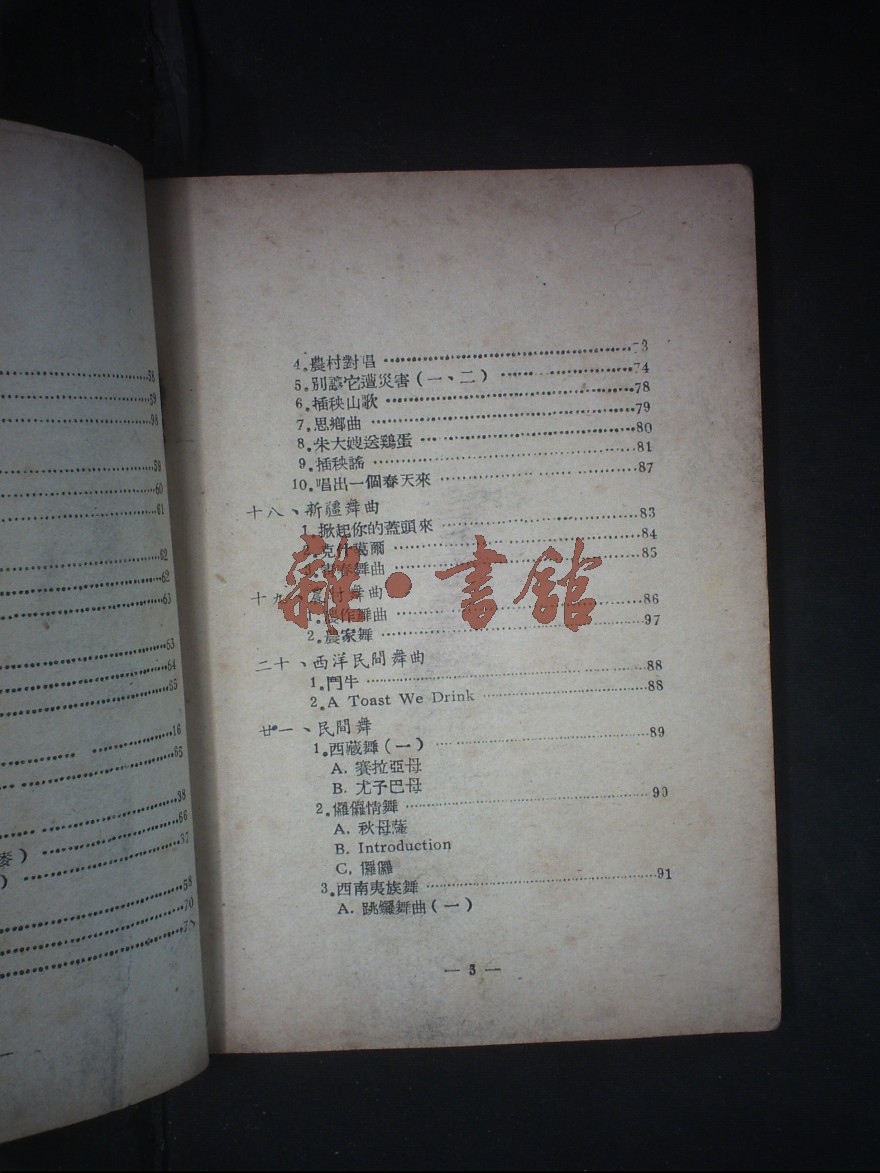 58
59
98
59
60
61
62
62
63
63
64
65
16
65
38
66
麥）
67
）
58
70
4.農村對唱 73
5.別讓它遭災害(一、二) 74
6.插秧山歌 78
7.思鄉曲 79
8.朱大嫂送鷄蛋 80
9.插秧謠 81
10.唱出一個春天來 87
十八、新疆舞曲
1.掀起你的蓋頭來 83
克什葛爾 84
舞曲 85
十九、農村舞曲
1.農作舞曲 86
2.農家舞 97
二十、西洋民間舞曲
1.鬥牛 88
2.A Toast We Drink 88
廿一、民間舞
1.西藏舞(一) 89
A. 賽拉亞母
B. 尤子巴母
2.儸儸情舞 90
A. 秋母蓙
B. Introduction
C. 儸儸
3.西南夷族舞 91
A. 跳舞曲(一)
— 3 —
雜·書館